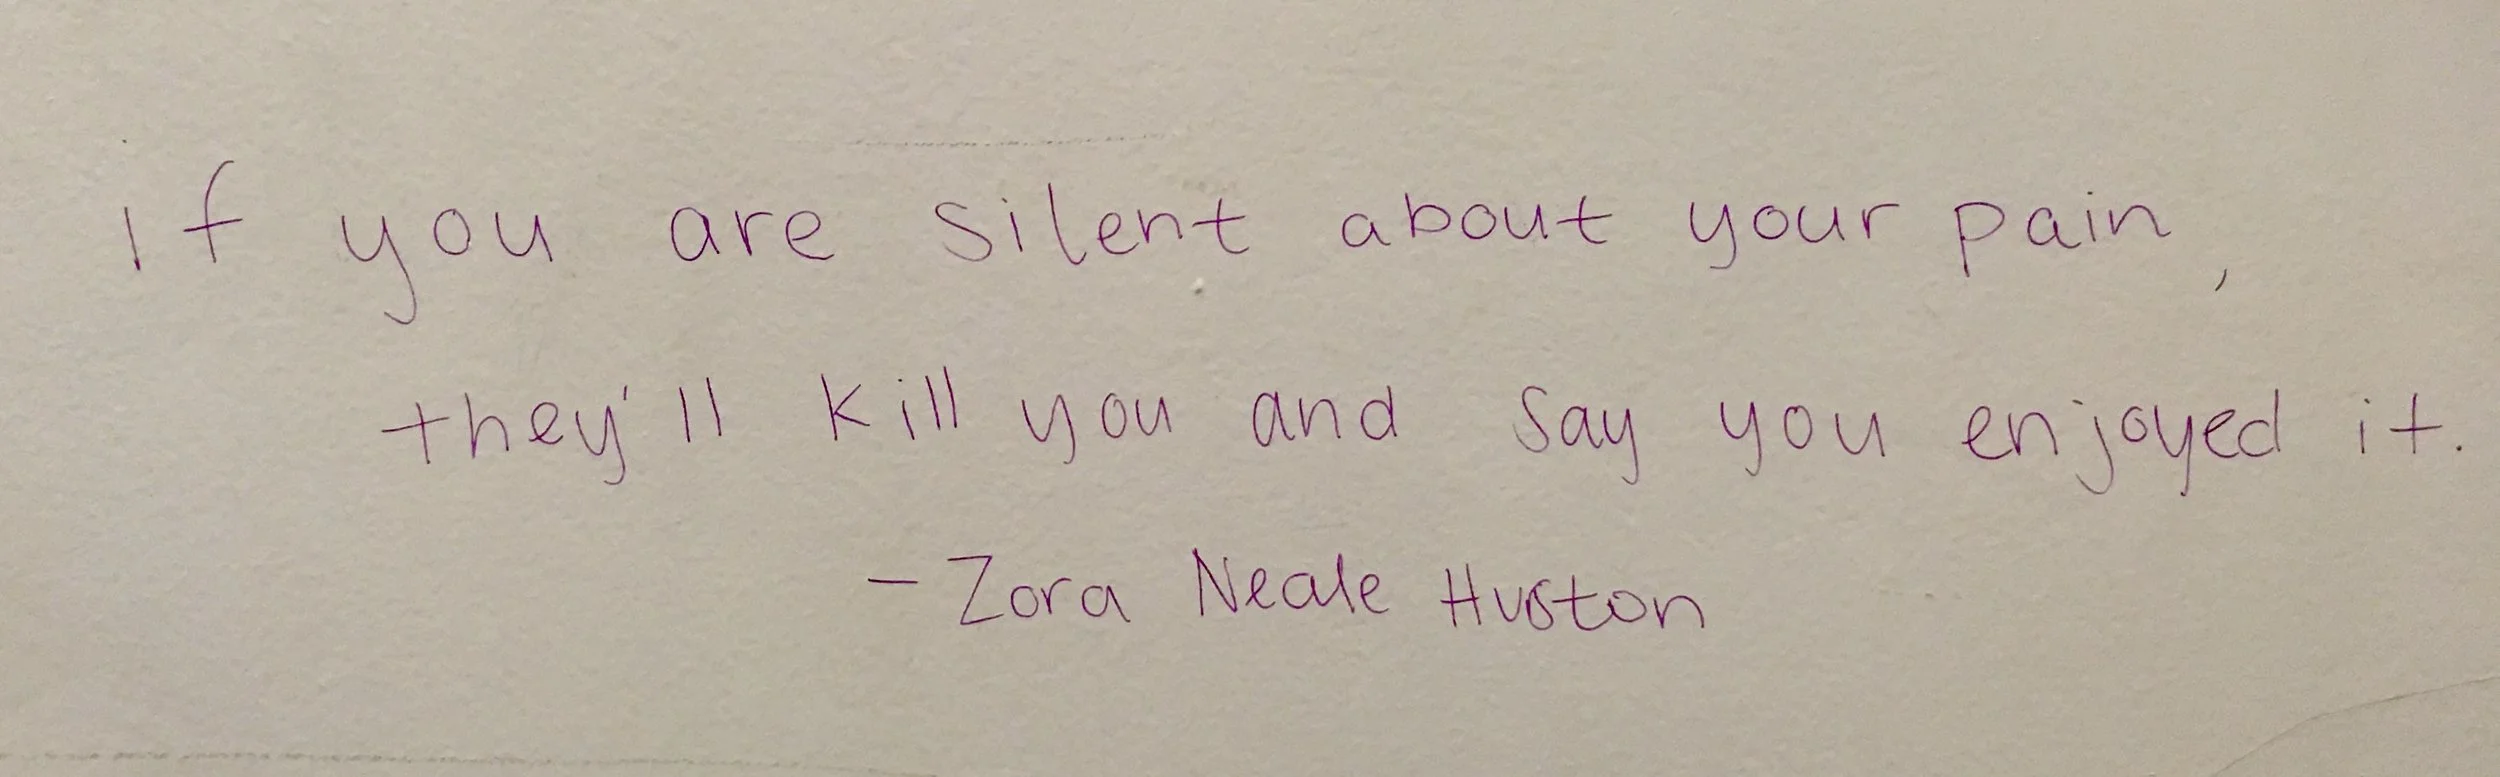 If you are silent about your pain,
they'll kill you and say you enjoyed it.
- Zora Neale Huston